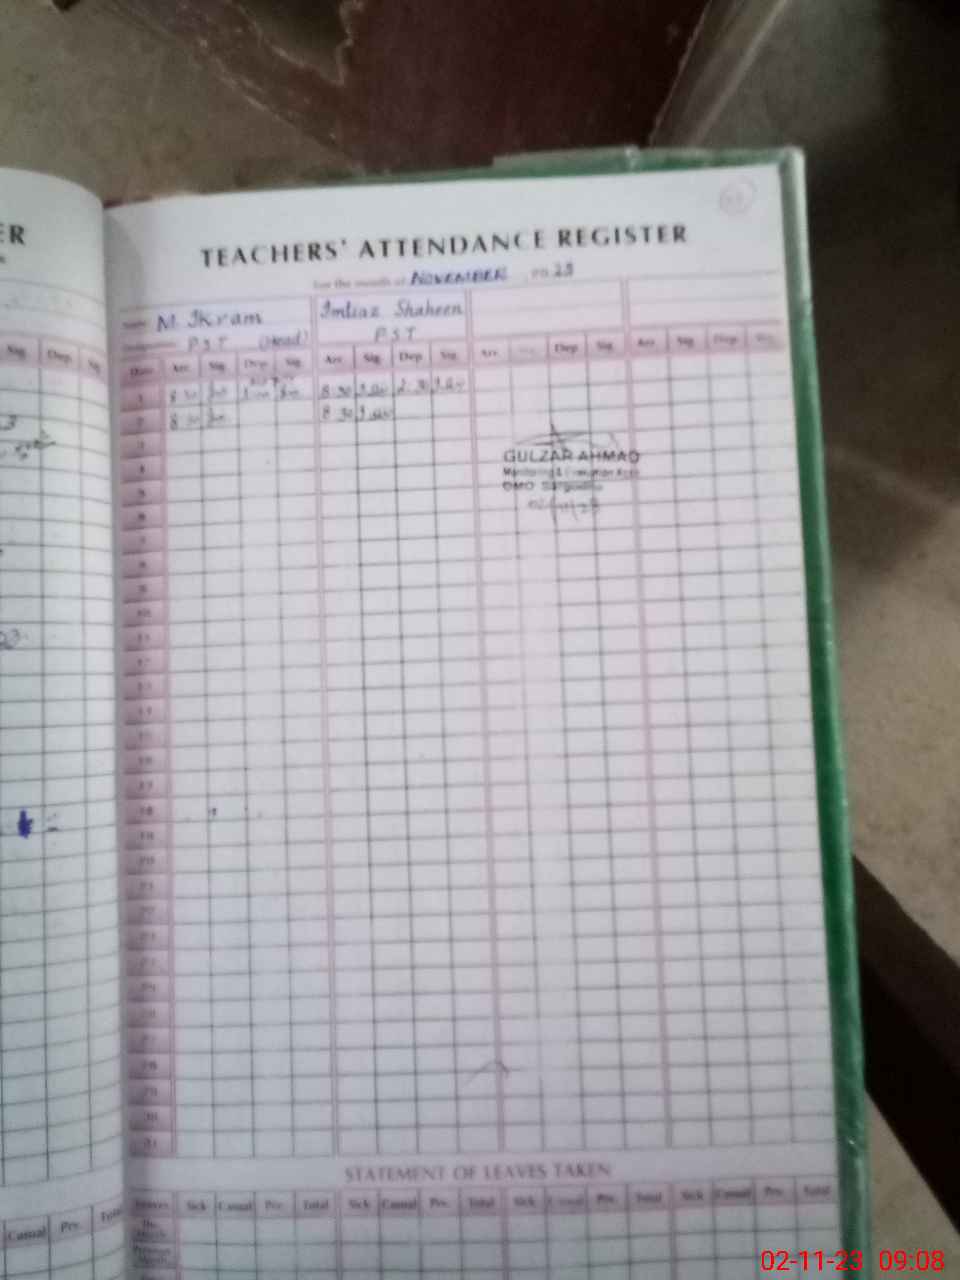 ER
TEACHERS' ATTENDANCE REGISTER
For the month of NOVEMBER 2023
Name M. Ikram Imtiaz Shaheen
Designation P.S.T (Head) P.S.T
Sig. Dep. Sig.
Date Arr. Sig. Dep. Sig. Arr. Sig. Dep. Sig. Arr. Sig. Dep. Sig. Arr. Sig. Dep. Sig.
1 8 30 8 30 2 30
2 8 30 8 30
3
4
GULZAR AHMAD
Monitoring & Evaluation
DMO Sargodha
02/11/23
5
6
7
8
9
10
11
12
13
14
15
16
17
18
19
20
21
22
23
24
25
26
27
28
29
30
31
STATEMENT OF LEAVES TAKEN
Leaves Sick Casual Prv. Total Sick Casual Prv. Total Sick Casual Prv. Total Sick Casual Prv. Total
Casual Prv. Total
This Month
Previous Month
02-11-23 09:08